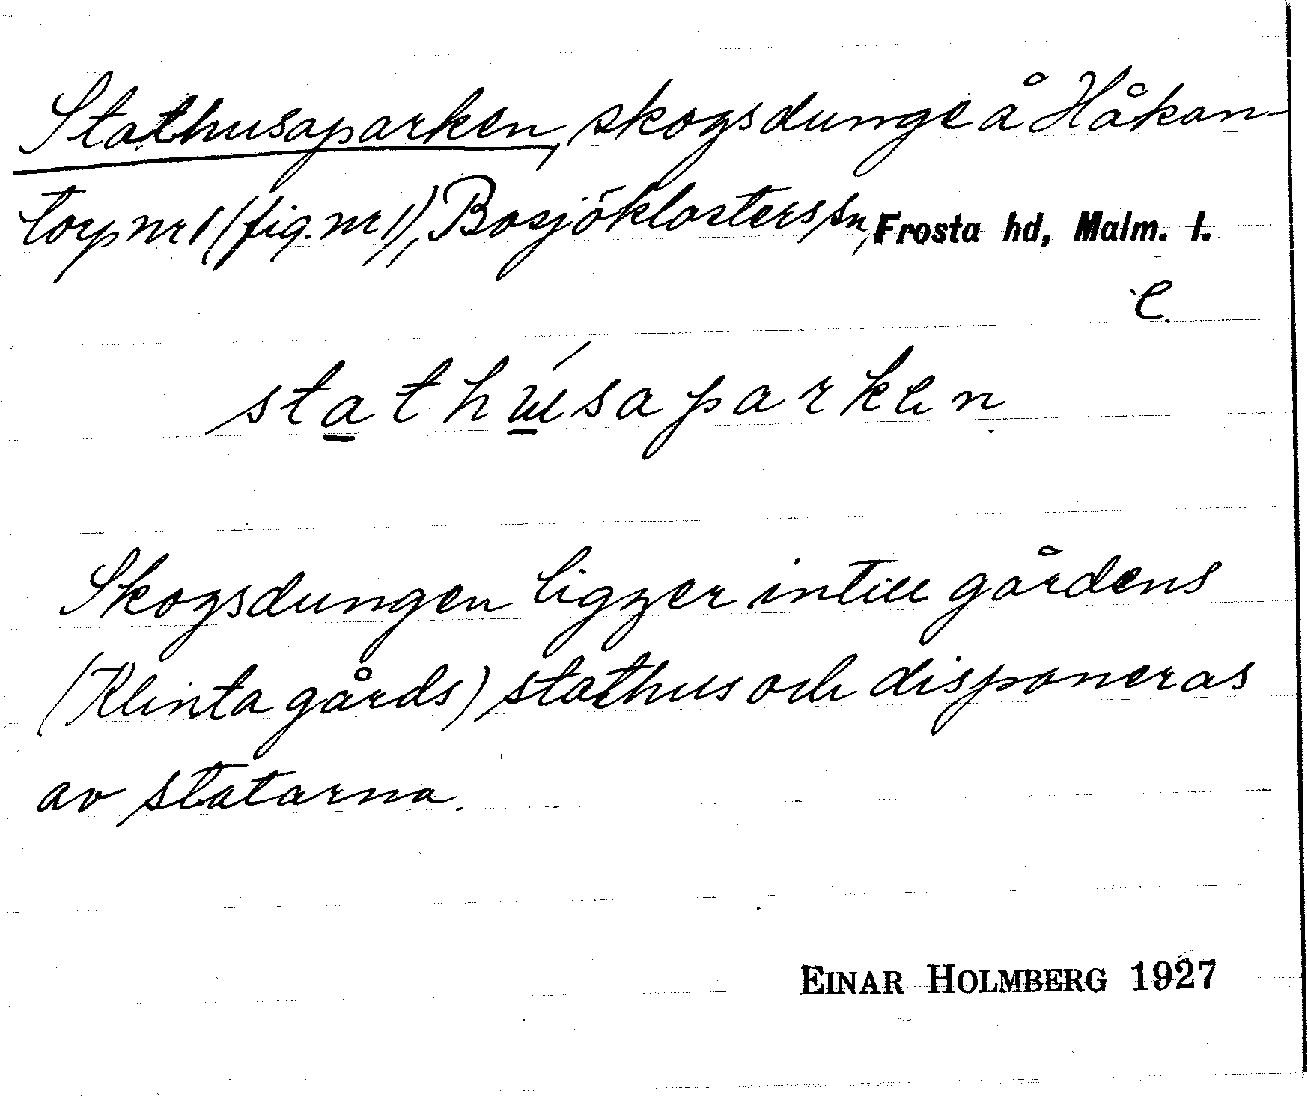 Stathusaparken, skogsdunge å Håkan-
torp nr 1 (fig. nr 1), Bosjöklosters sn, Frosta hd, Malm. l.
e
stathúsaparken
Skogsdungen ligger intill gårdens
(Klinta gårds) stathus och disponeras
av statarna.
EINAR HOLMBERG 1927